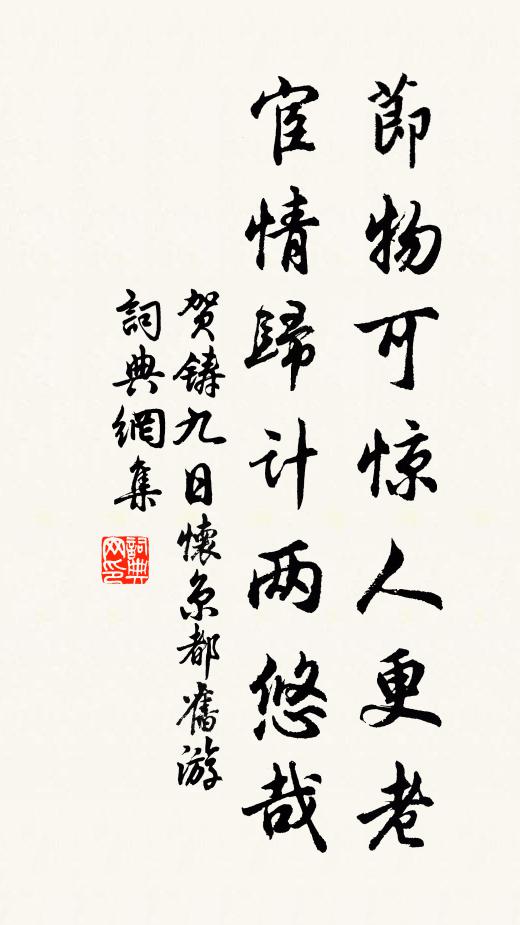 節物可惊人更老
宦情歸计两悠哉
贺鑄九日懷京都舊游
詞典網集
詞典网印